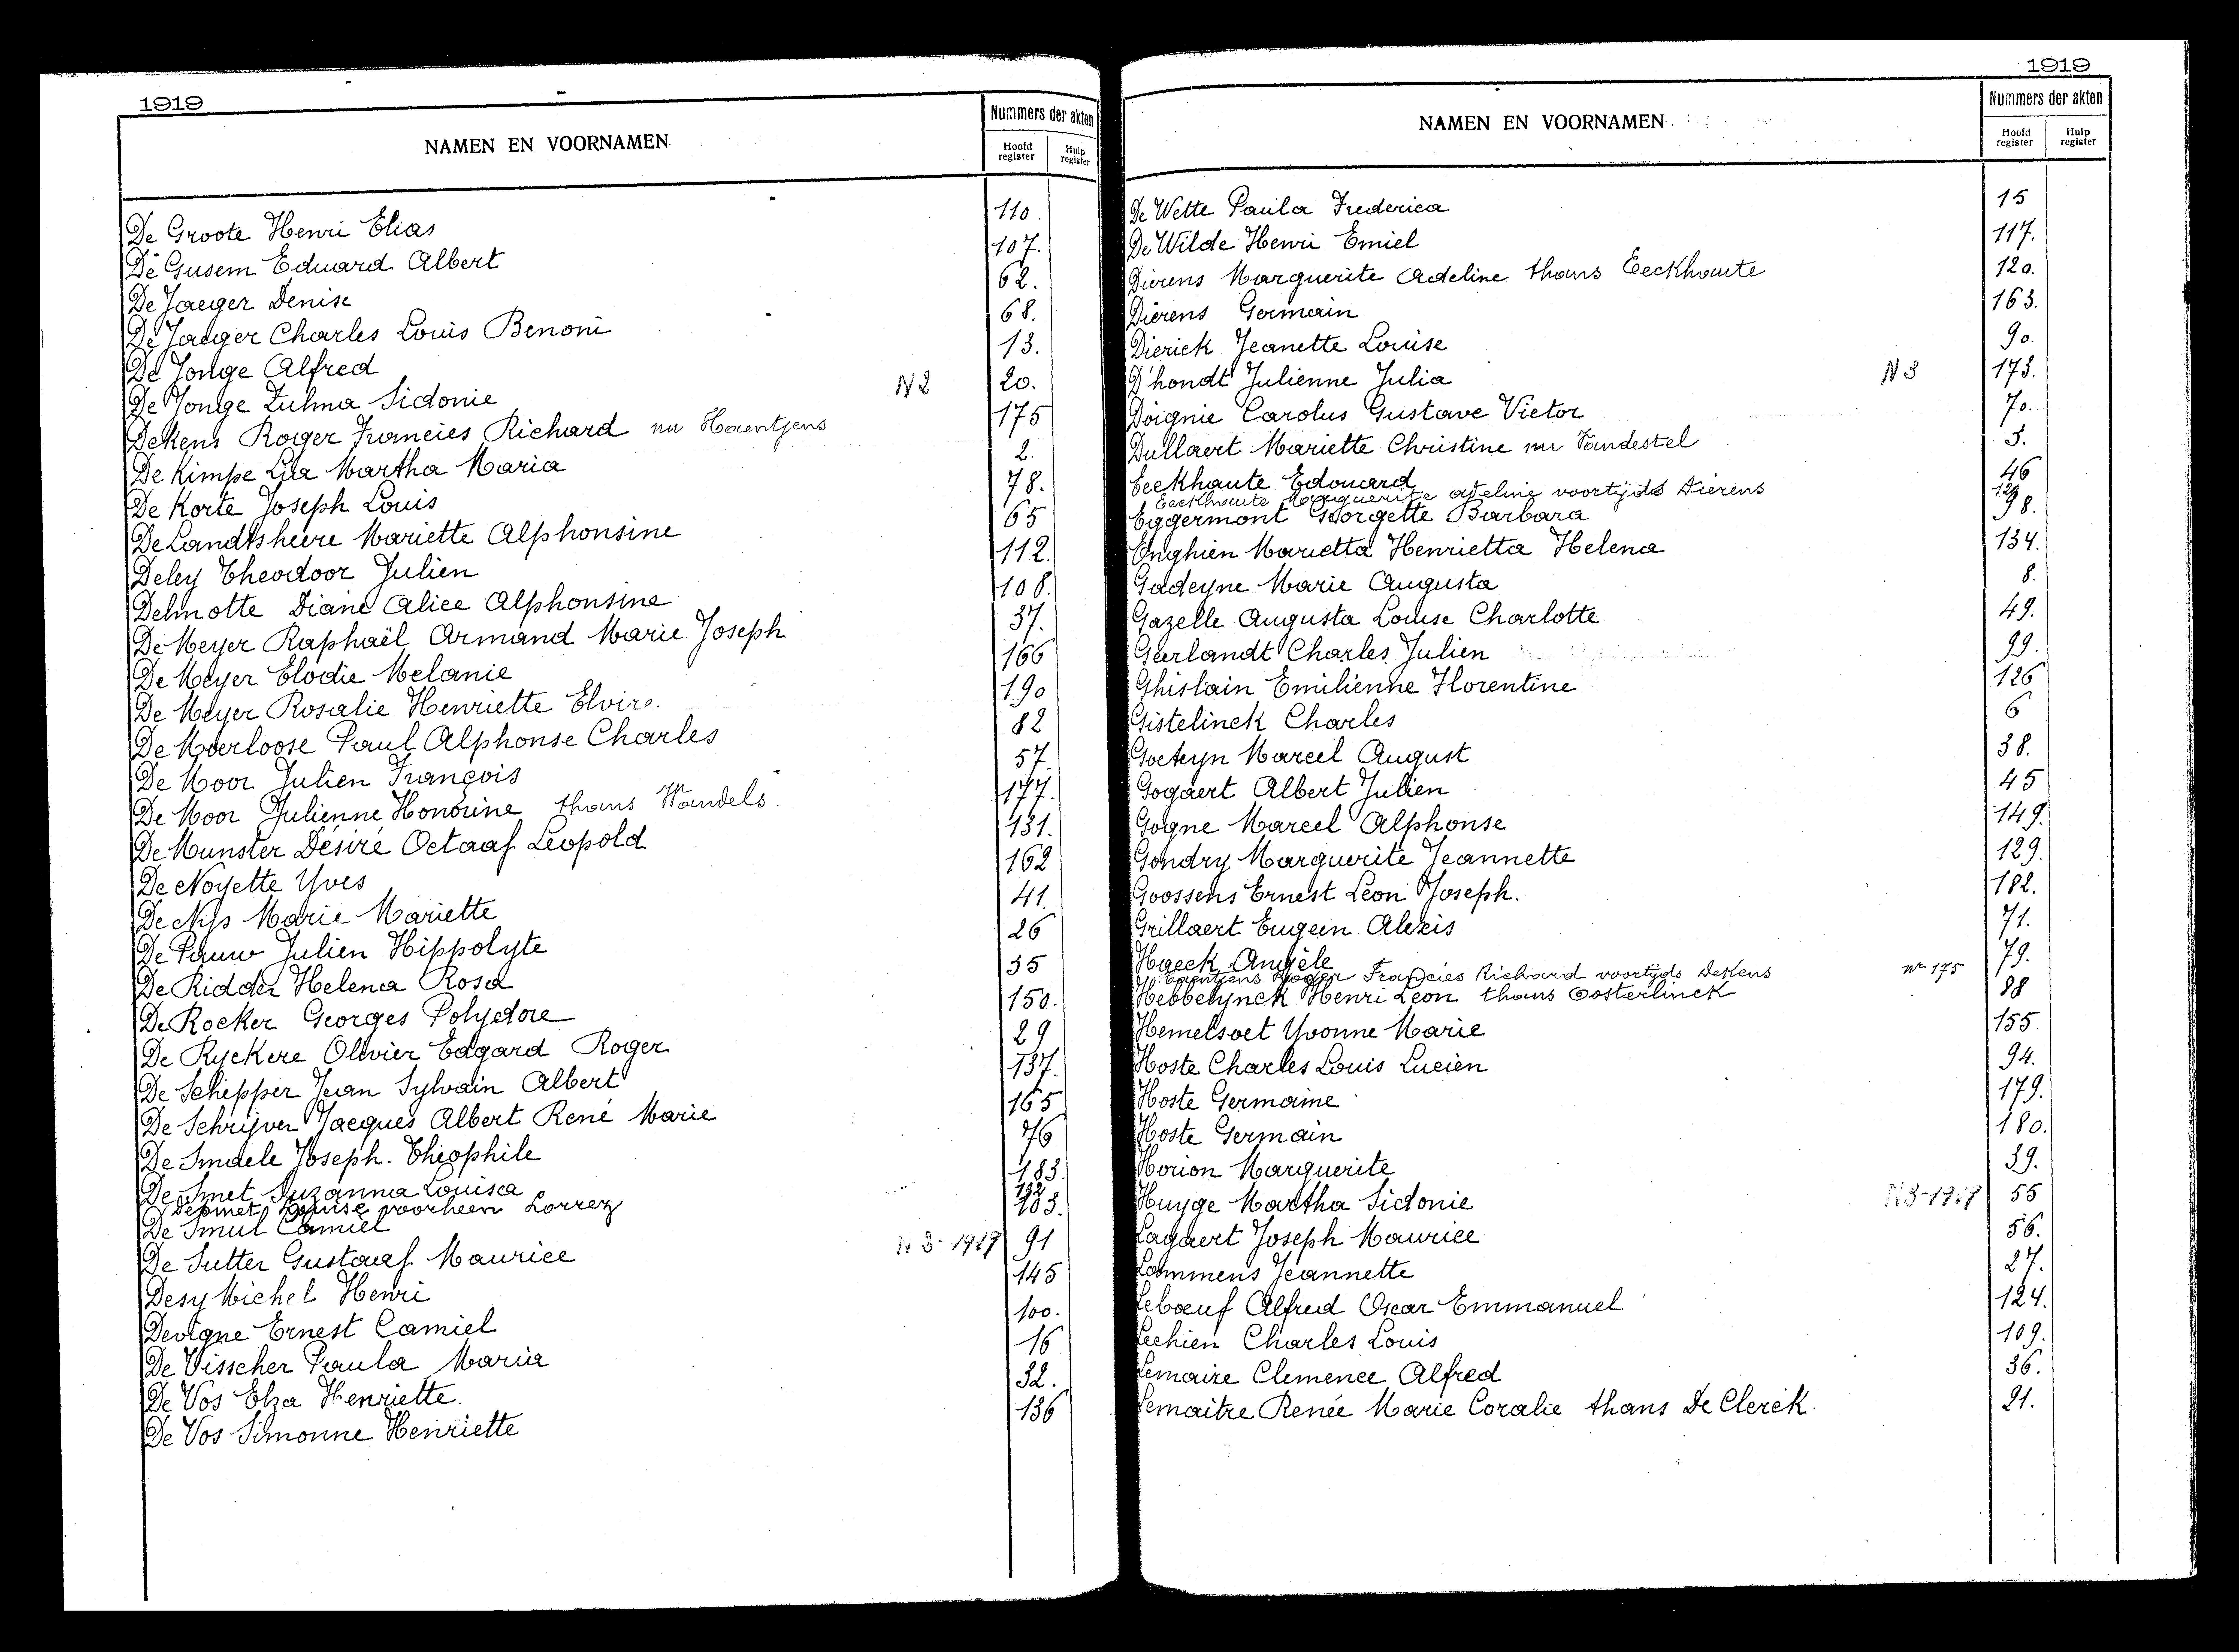 1919
NAMEN EN VOORNAMEN
Nummers der akten
Hoofd register
Hulp register
De Groote Henri Elias 110.
De Gusem Eduard Albert 107.
De Jaeger Denise 62.
De Jaeger Charles Louis Benoni 68.
De Jonge Alfred 13.
De Jonge Zulma Sidonie N 2 20.
Dekens Roger Francies Richard nu Haentjens 175
De Kimpe Lea Martha Maria 2.
De Korte Joseph Louis 78.
De Landtsheere Mariette Alphonsine 65
Deley Theodoor Julien 112.
Delmotte Diane Alice Alphonsine 108.
De Meyer Raphaël Armand Marie Joseph 37.
De Meyer Elodie Melanie 166
De Meyer Rosalie Henriette Elvire. 190
De Moerloose Paul Alphonse Charles 82
De Moor Julien François 57.
De Moor Julienne Honorine thans Wandels. 177.
De Munster Désiré Octaaf Leopold 131.
De Noyette Yves 162
De Nys Marie Mariette 41.
De Pauw Julien Hippolyte 26
De Ridder Helena Rosa 35
De Rocker Georges Polydore 150.
De Ryckere Olivier Edgard Roger 29
De Schepper Jean Sylvain Albert 137.
De Schrijver Jacques Albert René Marie 165
De Smaele Joseph. Théophile 76
De Smet Suzanna Louisa 183.
Desmet Louise voorheen Lorrez 192
De Smul Camiel 103.
De Sutter Gustaaf Maurice N 3-1917 91
Desy Michel Henri 145
Devigne Ernest Camiel 100.
De Visscher Paula Maria 16
De Vos Elza Henriette. 32.
De Vos Simonne Henriette 136
1919
NAMEN EN VOORNAMEN
Nummers der akten
Hoofd register
Hulp register
De Wette Paula Frederica 15
De Wilde Henri Emiel 117.
Dierens Marguerite Adeline thans Eeckhaute 120.
Dierens Germain 163.
Dierick Jeanette Louise 90.
D'hondt Julienne Julia N 3 173.
Doignie Carolus Gustave Victor 70.
Dullaert Mariette Christine nu Vandestel 3.
Eeckhaute Edouard 46
Eeckhaute Marguerite adeline voortijds Dierens 120
Eggermont Georgette Barbara 98.
Enghien Marietta Henrietta Helena 134.
Gadeyne Marie Augusta 8.
Gazelle Augusta Louise Charlotte 49.
Geerlandt Charles Julien 99.
Ghislain Emilienne Florentine 126
Gistelinck Charles 6
Goeteyn Marcel August 38.
Gogaert Albert Julien 45
Gogne Marcel Alphonse 149.
Gondry Marguerite Jeannette 129.
Goossens Ernest Leon Joseph. 182.
Grillaert Eugeen Alexis 71.
Haeck Angèle 79.
Haentjens Roger Francies Richard voortijds Dekens nr 175
Hebbelynck Henri Leon thans Oosterlinck 88
Hemelsoet Yvonne Marie 155.
Hoste Charles Louis Lucien 94.
Hoste Germaine 179.
Hoste Germain 180.
Horion Marguerite 39.
Huyge Martha Sidonie N 3-1917 55
Lagaert Joseph Maurice 56.
Lammens Jeannette 27.
Lebœuf Alfred Oscar Emmanuel 124.
Lechien Charles Louis 109.
Lemaire Clemence Alfred 36.
Lemaitre Renée Marie Coralie thans De Clerck. 21.